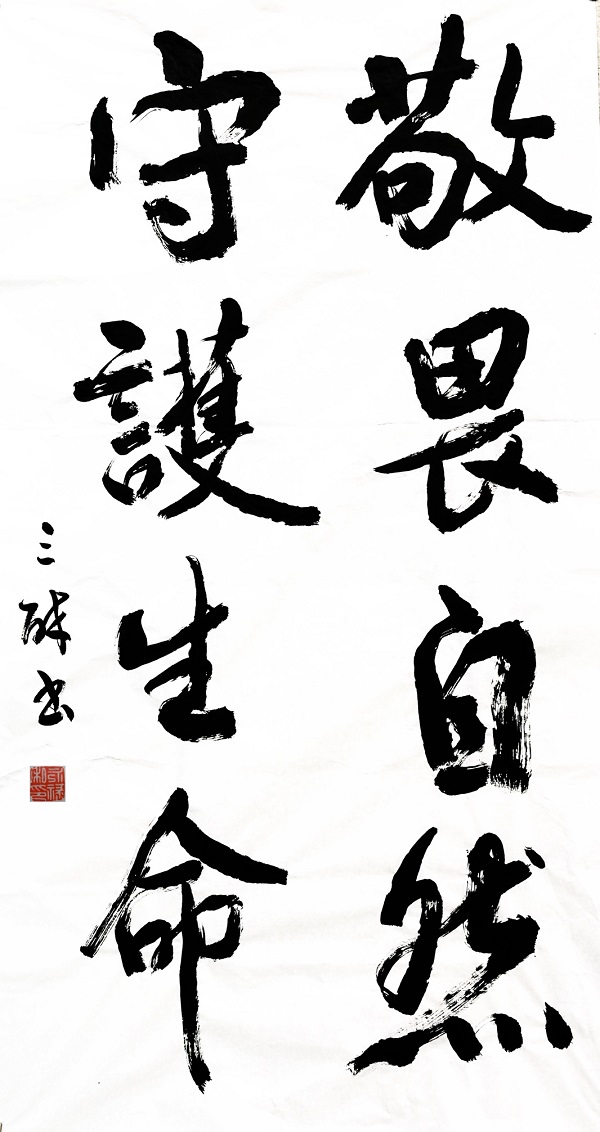 敬畏自然
守護生命
三醉书